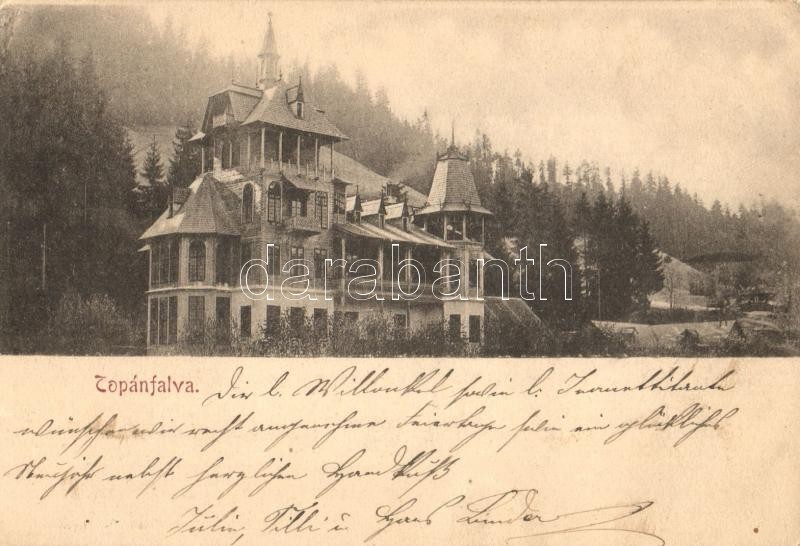 darabanth
Topánfalva.
Dir l. Willonkel sowie l. Jeanettitante
wünschen wir recht angenehme Feiertage sowie ein glückliches
Neujahr nebst herzlichen Handkuß
Julie, Tilli u. Hans Binder